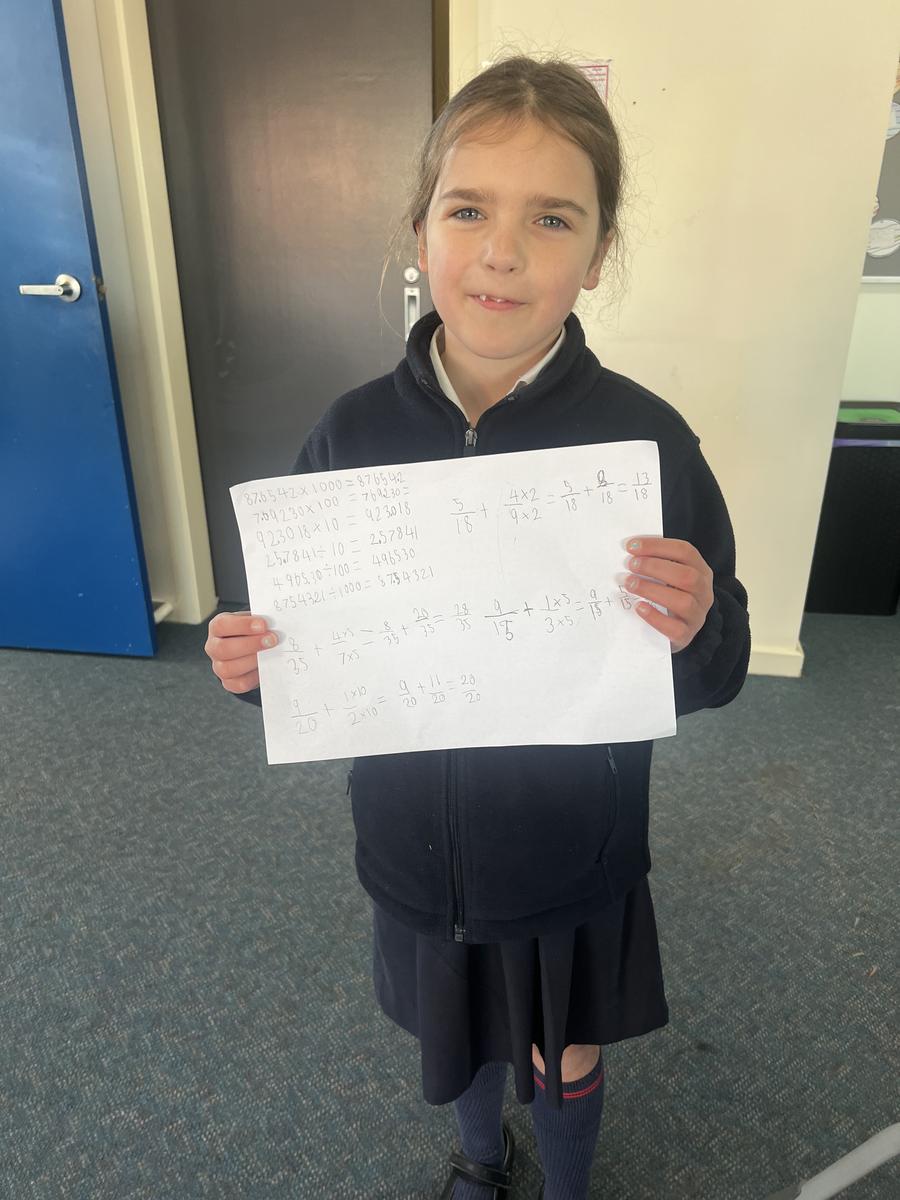 876542 x 1000 = 876542
769230 x 100 = 769230=
923018 x 10 = 923018
257841 ÷ 10 = 257841
496530 ÷ 100 = 496530
8754321 ÷ 1000 = 8754321
5/18 + 4x2/9x2 = 5/18 + 8/18 = 13/18
8/35 + 4x5/7x5 = 8/35 + 20/35 = 28/35
9/15 + 1x5/3x5 = 9/15 + 5/15
9/20 + 1x10/2x10 = 9/20 + 11/20 = 20/20